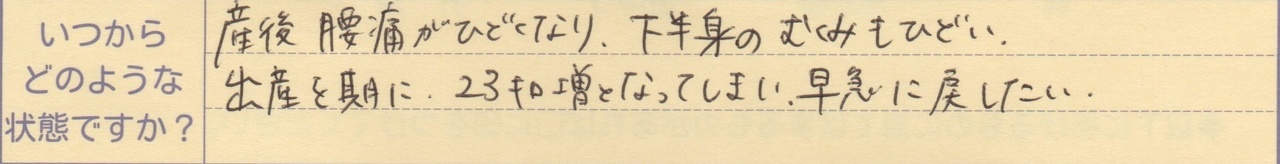 いつから
どのような
状態ですか?
産後 腰痛がひどくなり、下半身の むくみもひどい.
出産を期に、23キロ増となってしまい、早急に戻したい.